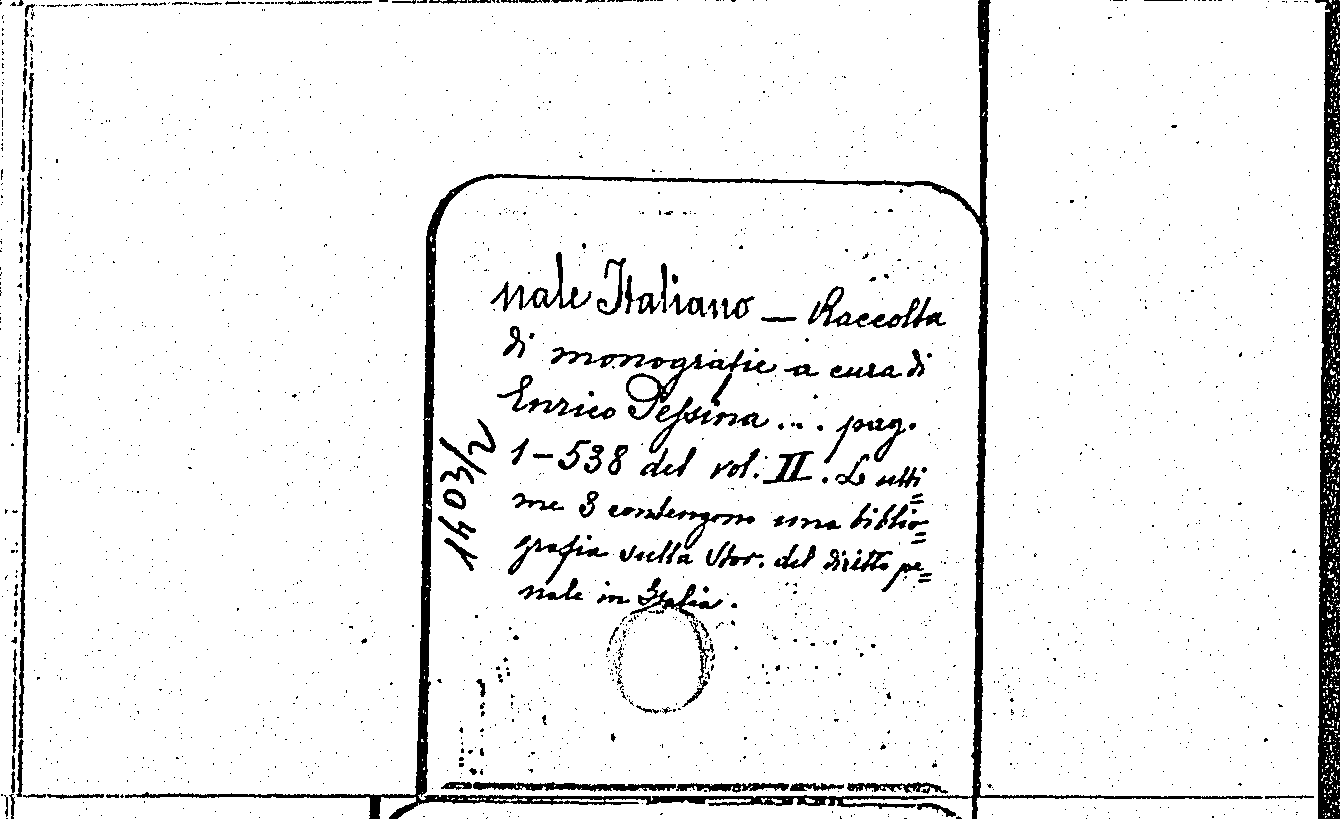 nale Italiano — Raccolta
di monografie a cura di
Enrico Pessina ... pag.
1-538 del vol. II. Le ulti=
me 3 contengono una biblio=
grafia sulla Stor. del diritto pe=
nale in Italia.
1403/2